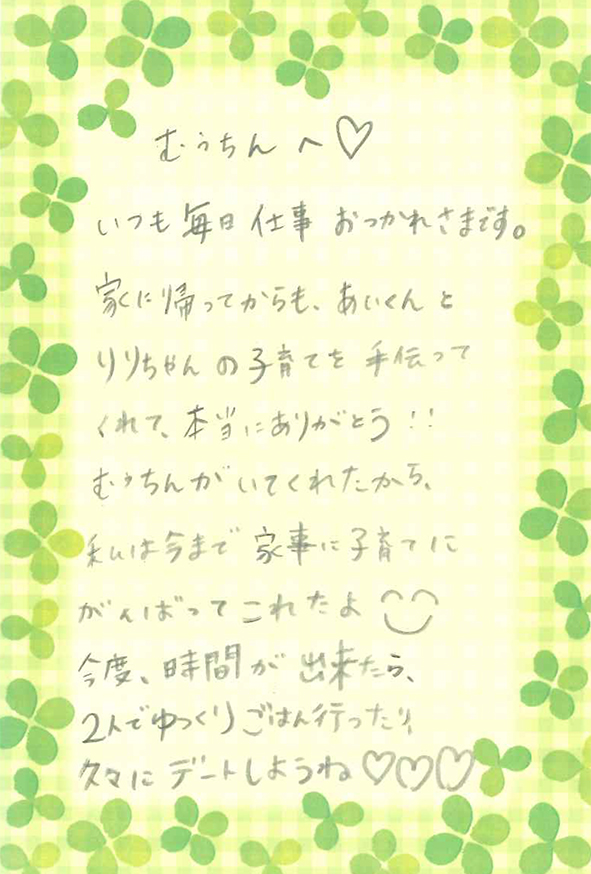 むぅちんへ♡
いつも毎日仕事おつかれさまです。
家に帰ってからも、あいくんと
りりちゃんの子育てを手伝って
くれて、本当にありがとう!!
むぅちんがいてくれたから、
私は今まで家事に子育てに
がんばってこれたよ
今度、時間が出来たら、
2人でゆっくりごはん行ったり、
久々にデートしようね♡♡♡